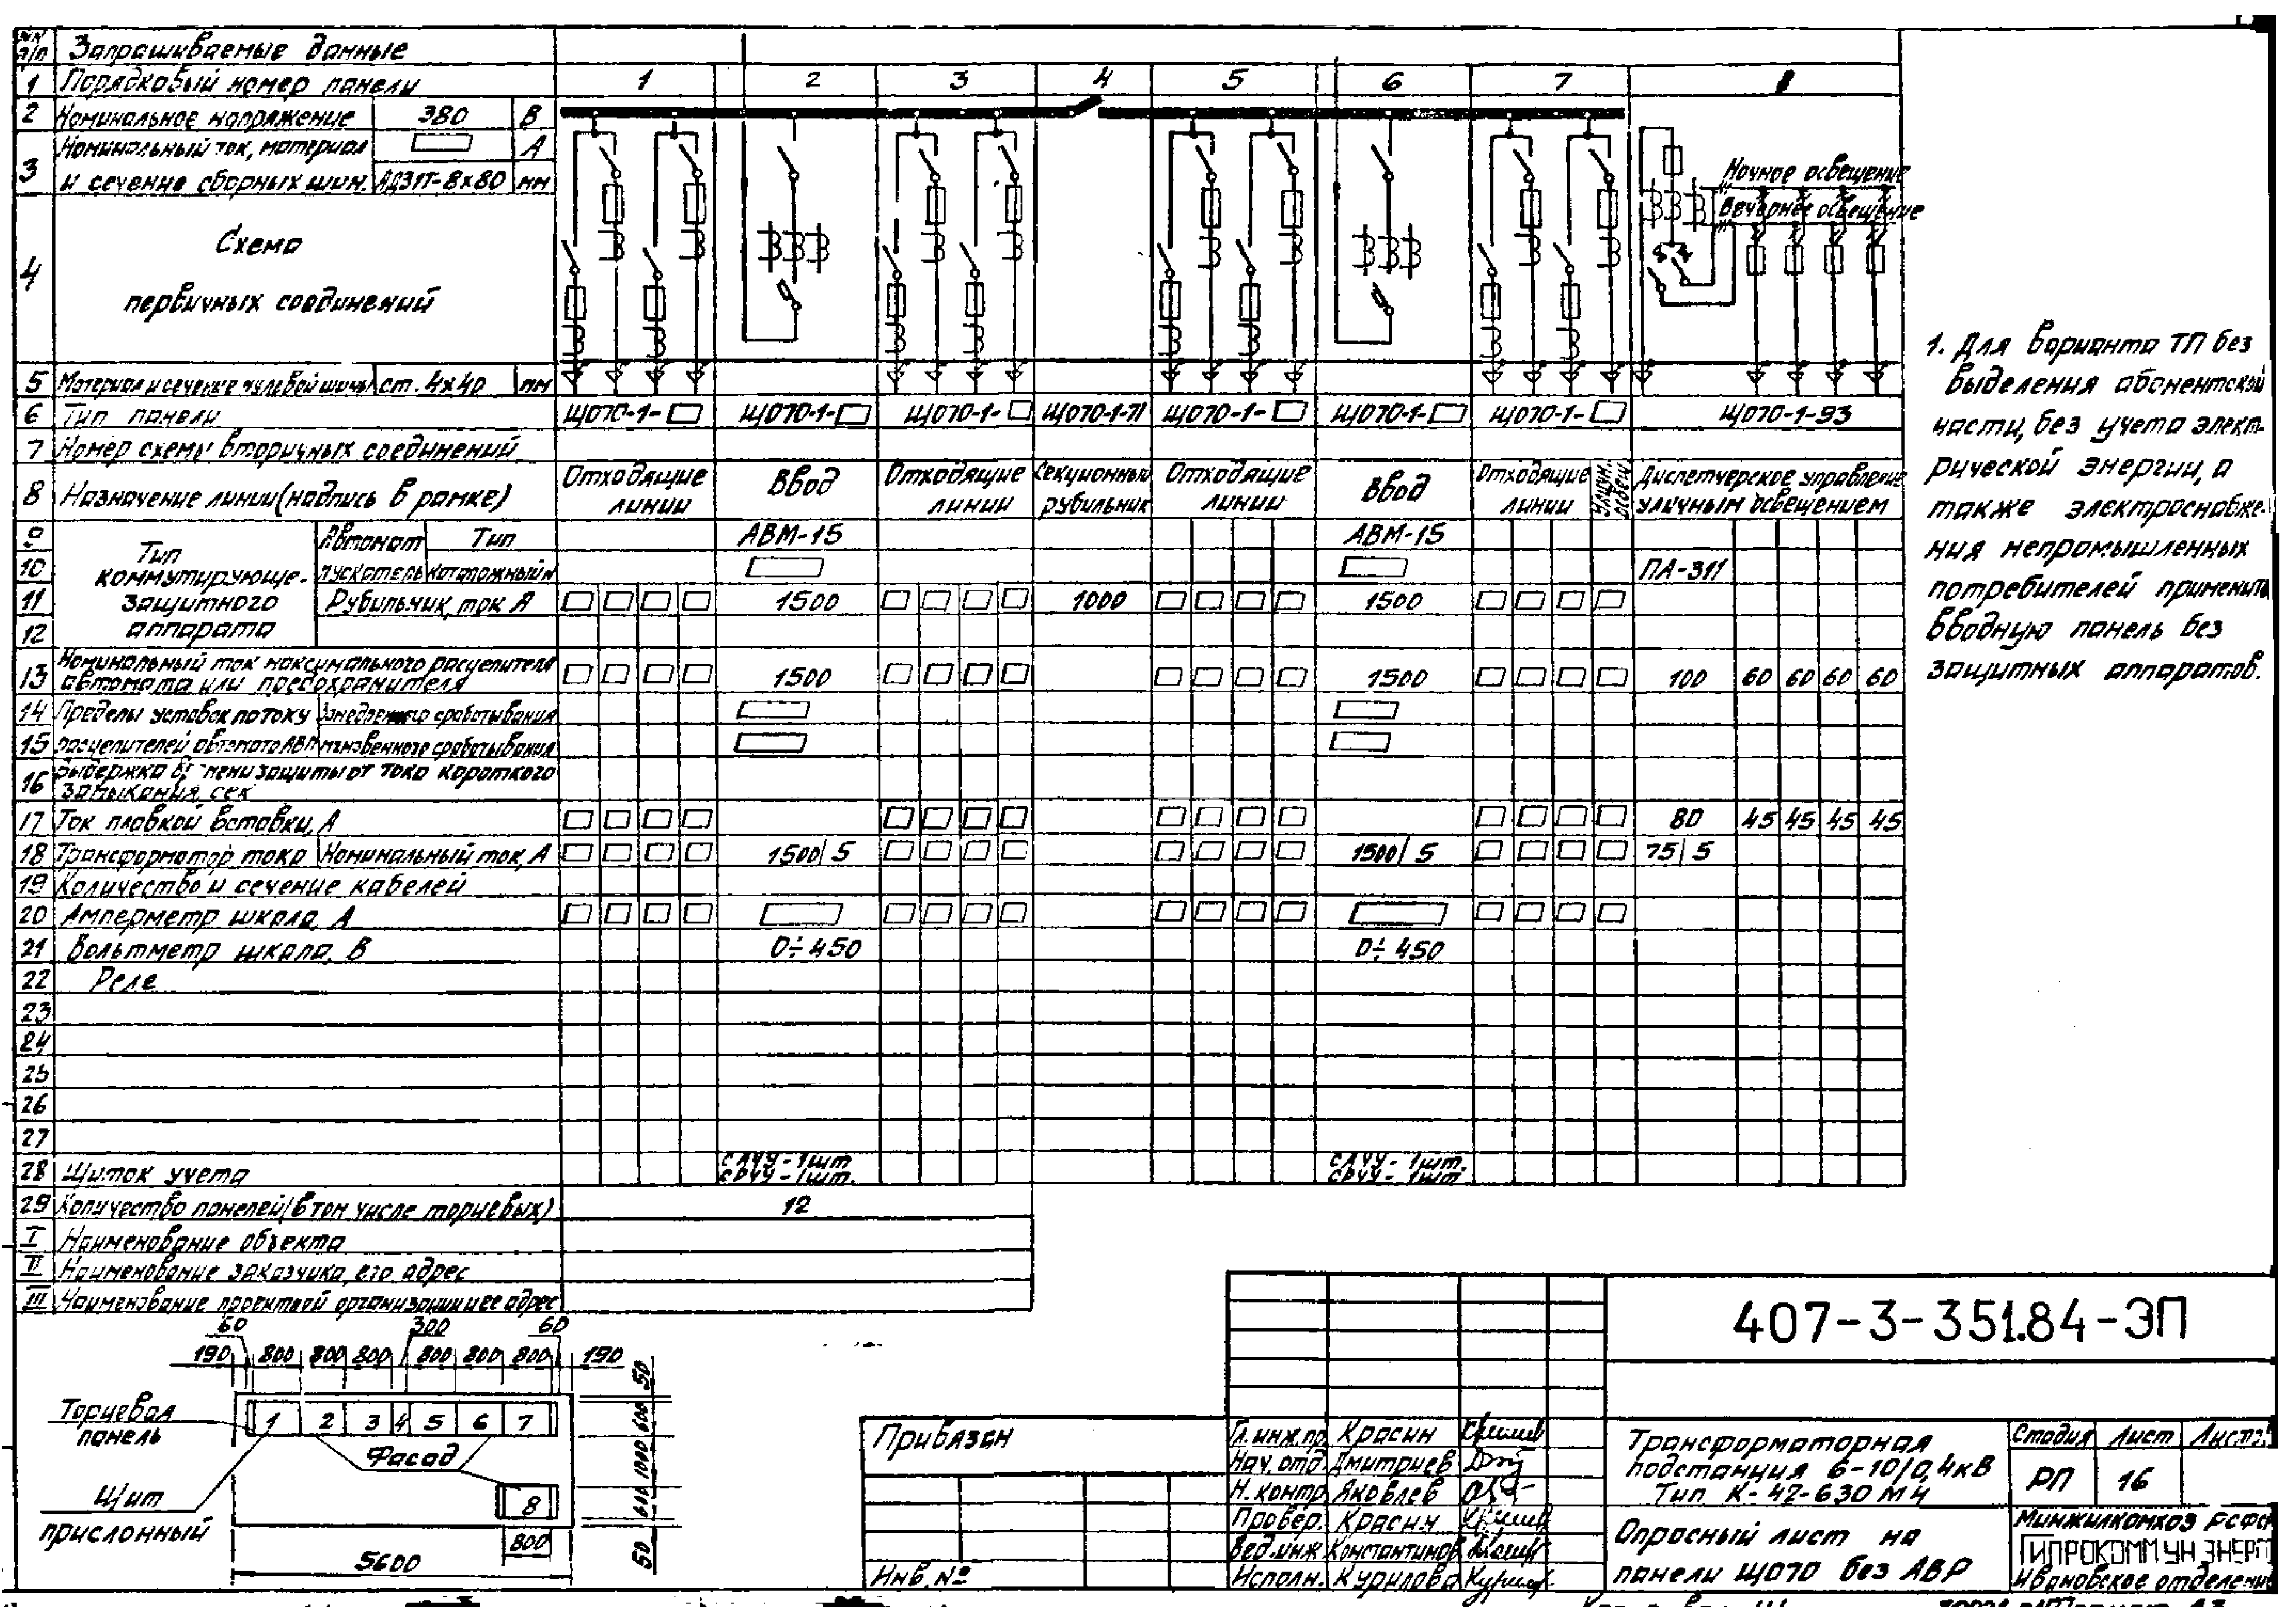 №№ п/п Запрашиваемые данные
1 Порядковый номер панели 1 2 3 4 5 6 7 8
2 Номинальное напряжение 380 В
3 Номинальный ток, материал А
и сечение сборных шин. АД31Т-8х80 мм
Ночное освещение
Вечернее освещение
4 Схема
первичных соединений
5 Материал и сечение нулевой шины ст. 4х40 мм
6 Тип панели ЩО70-1- ЩО70-1- ЩО70-1- ЩО70-1-71 ЩО70-1- ЩО70-1- ЩО70-1- ЩО70-1-93
7 Номер схемы вторичных соединений
8 Назначение линии (надпись в рамке) Отходящие линии Ввод Отходящие линии Секционный рубильник Отходящие линии Ввод Отходящие линии Уличн. освещ Диспетчерское управление уличным освещением
9 Тип коммутирующе-защитного аппарата Автомат Тип АВМ-15 АВМ-15
10 пускатель каталожный № ПА-311
11 Рубильник, ток А 1500 1000 1500
12
13 Номинальный ток максимального расцепителя автомата или предохранителя 1500 1500 100 60 60 60 60
14 Пределы уставок по току замедленного срабатывания
15 расцепителей автомата АВМ мгновенного срабатывания
16 Выдержка времени защиты от тока короткого замыкания, сек
17 Ток плавкой вставки, А 80 45 45 45 45
18 Трансформатор тока Номинальный ток, А 1500/5 1500/5 75/5
19 Количество и сечение кабелей
20 Амперметр шкала, А
21 Вольтметр шкала, В 0÷450 0÷450
22 Реле
23
24
25
26
27
28 Щиток учета САЧУ-1шт СРЧУ-1шт. САЧУ-1шт. СРЧУ-1шт.
29 Количество панелей (в том числе торцевых) 12
I Наименование объекта
II Наименование заказчика, его адрес
III Наименование проектной организации и ее адрес
1. Для варианта ТП без
выделения абонентской
части, без учета элект-
рической энергии, а
также электроснабже-
ния непромышленных
потребителей применить
вводную панель без
защитных аппаратов.
60 300 60
190 800 800 800 800 800 800 190
50
600
1000
600
50
Торцевая
панель
1 2 3 4 5 6 7
Фасад
Щит
прислонный
8
800
5600
Привязан
Инв. №
Гл. инж. пр. Красин
Нач. отд. Дмитриев
Н. контр. Яковлев
Провер. Красин
Вед. инж Константинов
Исполн. Курилова
407-3-351.84-ЭП
Трансформаторная
подстанция 6-10/0,4кВ
Тип К-42-630М4
Стадия Лист
РП 16
Опросный лист на
панели ЩО70 без АВР
Минжилкомхоз РСФСР
ГИПРОКОММУНЭНЕРГО
Ивановское отделение